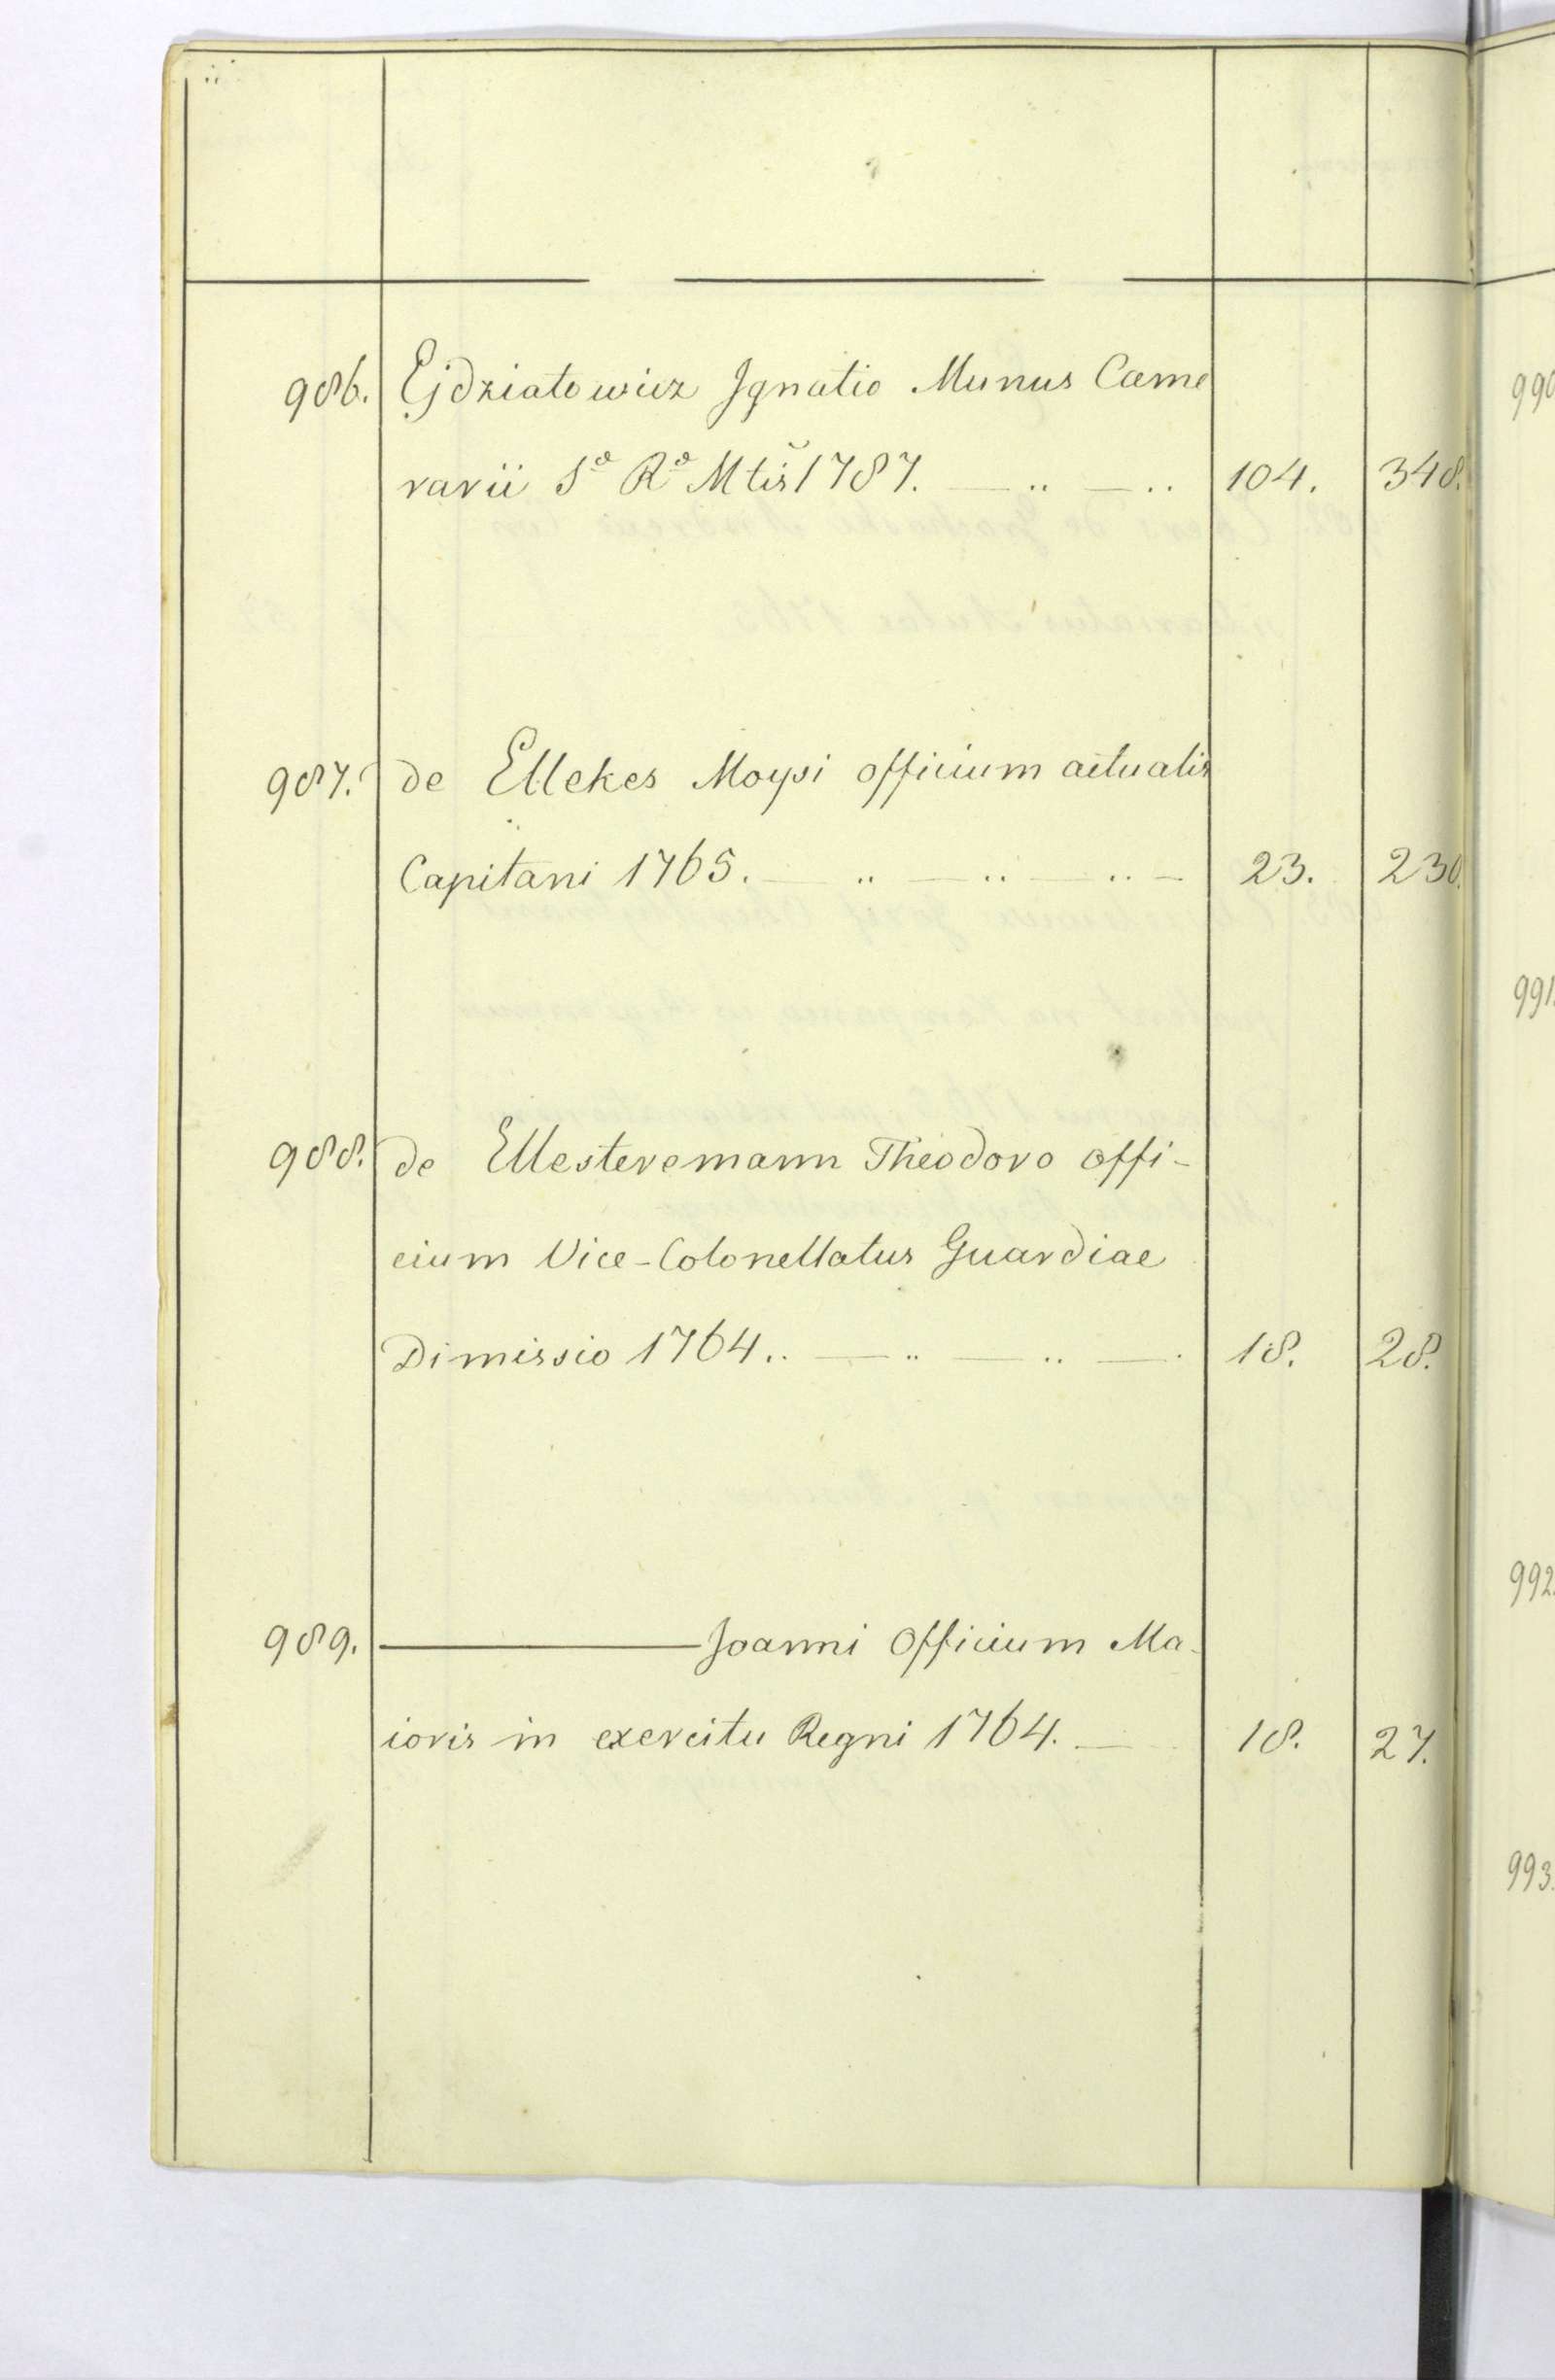 986. Ejdziatowicz Ignatio Munus Came
rarii Sᵃ Rᵃ Mtis 1787. — .. — .. 104. 348.
987. de Ellekes Moysi officium actualis
Capitani 1765. — .. — .. — .. — 23. 230.
988. de Ellesteremann Theodoro offi-
cium Vice-Colonellatus Guardiae
Dimissio 1764.. — .. — .. — . 18. 28.
989. ——— Joanni Officium Ma-
ioris in exercitu Regni 1764. — 18. 27.
990
991.
992.
993.